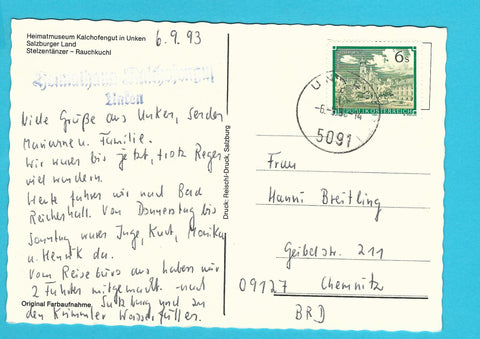 Heimatmuseum Kalchofengut in Unken
Salzburger Land
Stelzentänzer – Rauchkuchl
6.9.93
Heimathaus Kalchofengut
Unken
Viele Grüße aus Unken, senden
Marianne u. Familie.
Wir waren bis jetzt, trotz Regen
viel wandern.
Heute fuhren wir nach Bad
Reichenhall. Von Donnerstag bis
Sonntag waren Inge, Kurt, Monika
u. Henrik da.
Vom Reisebüro aus haben wir
2 Fahrten mitgemacht - nach
Original Farbaufnahme
Salzburg und zu
den Krimmler Wasserfällen.
Druck: Reischl-Druck, Salzburg
6 S
REPUBLIK ÖSTERREICH
5091
Frau
Hanni Breitling
Geibelstr. 211
09127 Chemnitz
BRD